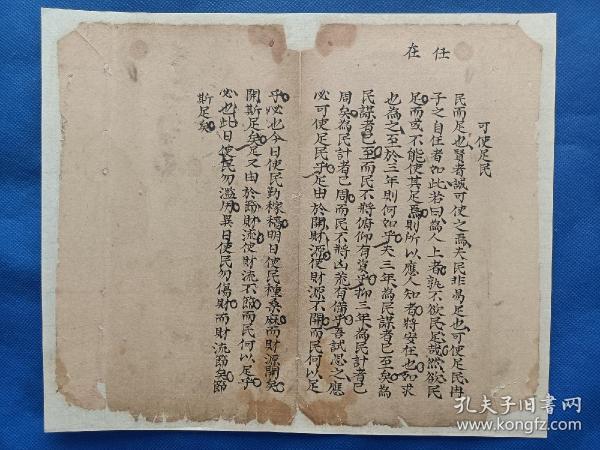 任在
可使足民
民而足也賢者誠可使之焉夫民非易足也可使足民冉
子之自任者如此若曰爲人上者孰不欲民足哉然欲民
足而或不能使其足焉則所以應人知者將安在也如求
也爲之至於三年則何如乎夫三年爲民謀者已至矣爲
民謀者已至而民不將俯仰有資乎抑三年爲民計者已
周矣爲民計者已周而民不將凶荒有備乎吾試思之應
必可使足民乎足由於開財源使財源不開而民何以足
乎必也今日使民勤稼穡明日使民種桑麻而財源開矣
開斯足矣足又由於節財流使財流不節而民何以足乎
必也此日使民勿濫用異日使民勿傷財而財流節矣節
斯足矣
孔夫子旧書网
www.kongfz.com